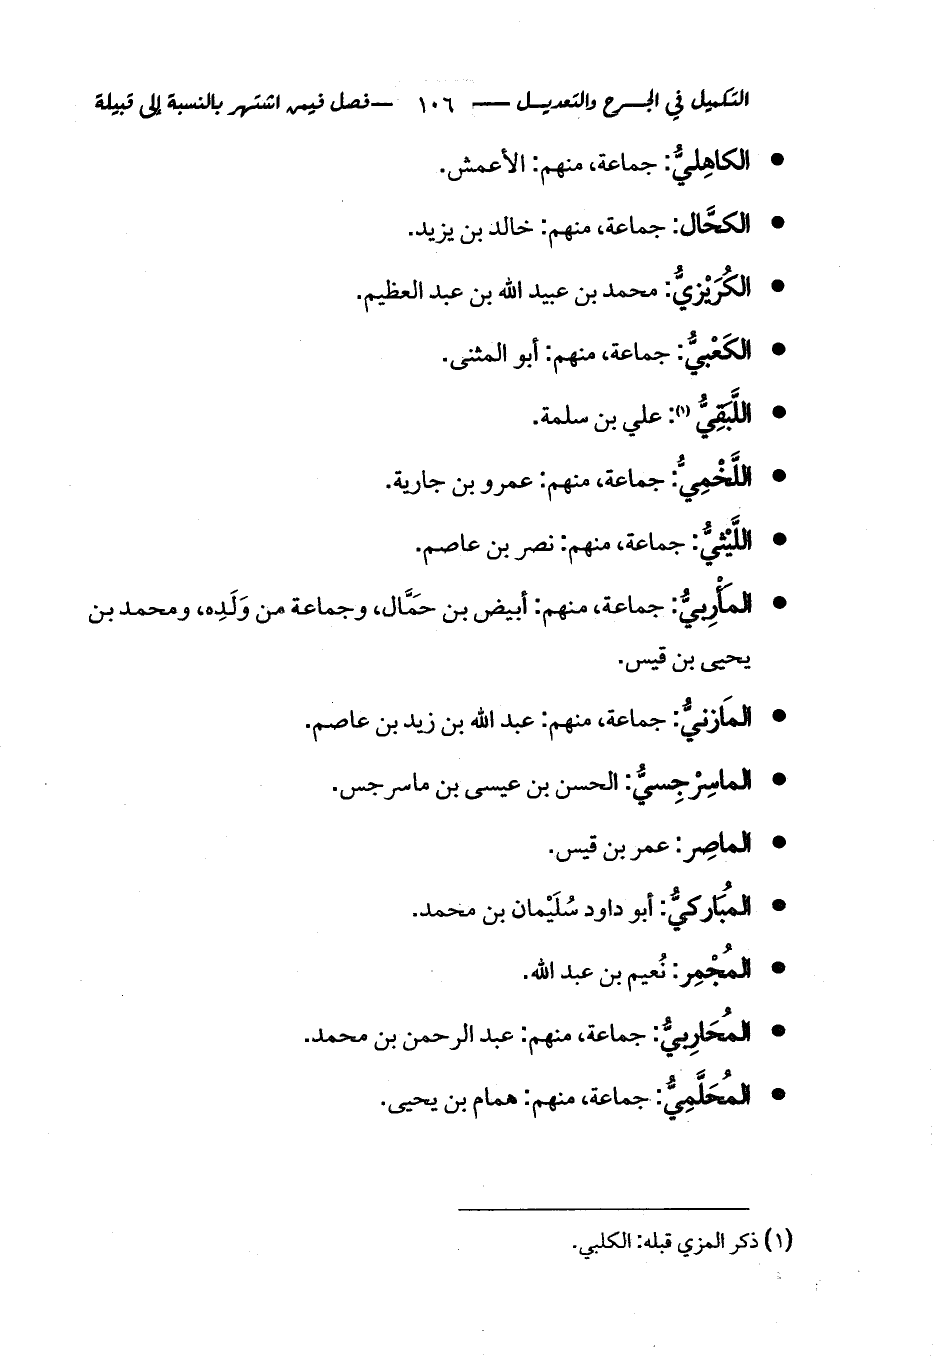 التكميل في الجرح والتعديل — ١٠٦ — فصل فيمن اشتهر بالنسبة إلى قبيلة
• الكاهِليُّ: جماعة، منهم: الأعمش.
• الكحَّال: جماعة، منهم: خالد بن يزيد.
• الكُرَيْزِيُّ: محمد بن عبيد الله بن عبد العظيم.
• الكَعْبيُّ: جماعة، منهم: أبو المثنى.
• اللَّبَقِيُّ (١): علي بن سلمة.
• اللَّخْمِيُّ: جماعة، منهم: عمرو بن جارية.
• اللَّيْثيُّ: جماعة، منهم: نصر بن عاصم.
• المَأْرِبيُّ: جماعة، منهم: أبيض بن حمَّال، وجماعة من وَلَدِه، ومحمد بن
يحيى بن قيس.
• المَازنيُّ: جماعة، منهم: عبد الله بن زيد بن عاصم.
• الماسِرْجِسيُّ: الحسن بن عيسى بن ماسرجس.
• الماصِر: عمر بن قيس.
• المُبَاركيُّ: أبو داود سُلَيْمان بن محمد.
• المُجْمِر: نُعيم بن عبد الله.
• المُحَارِبيُّ: جماعة، منهم: عبد الرحمن بن محمد.
• المُحَلَّمِيُّ: جماعة، منهم: همام بن يحيى.
(١) ذكر المزي قبله: الكلبي.